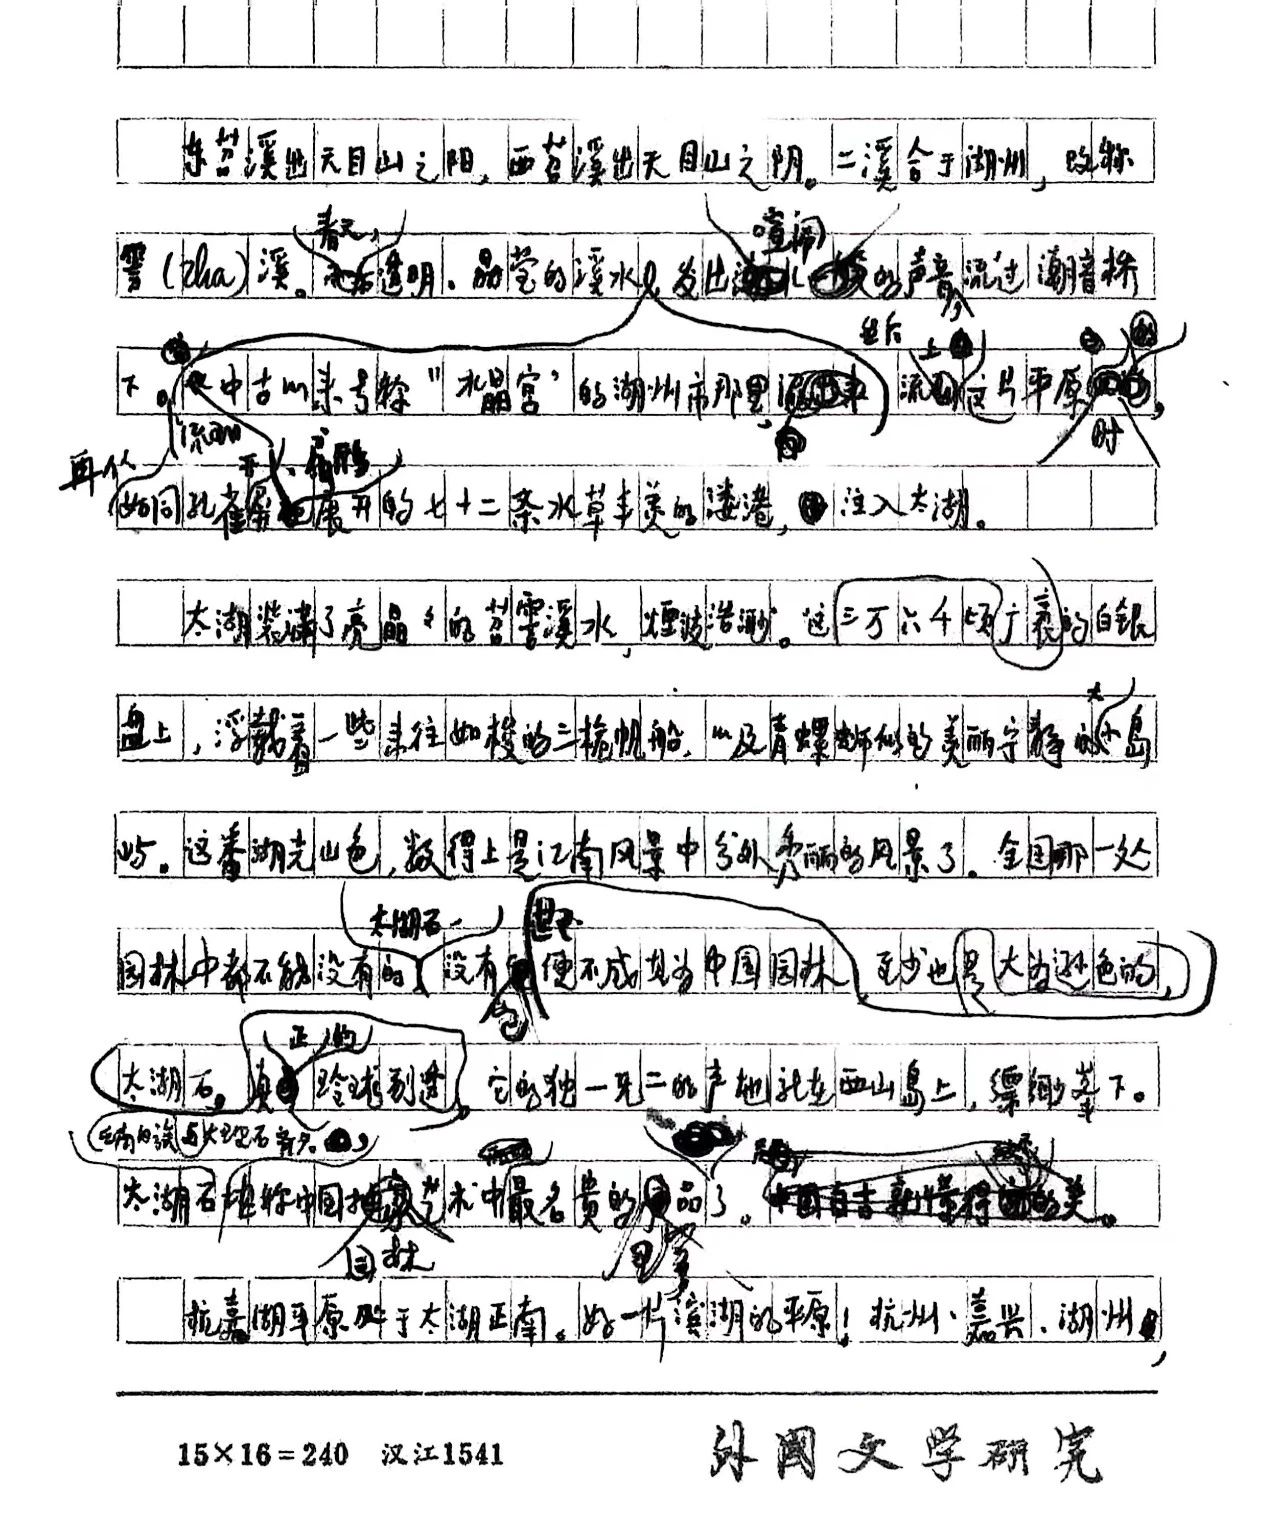 东苕溪出天目山之阳,西苕溪出天目山之阴。二溪合于湖州,始称
春天,
喧闹
霅(zha)溪。透明、晶莹的溪水,发出的声音,流过潮音桥
然后
上
下。中古以来号称“水晶宫”的湖州市那里,流这片平原
流
时
再从
开
如同孔雀屏展开的七十二条水草丰美的溇港,注入太湖。
太湖装满了亮晶晶的苕霅溪水,烟波浩渺。这三万六千顷广袤的白银
大
盘上,浮载着一些来往如梭的三桅帆船,以及青螺蛳似的美丽宁静的小岛
屿。这番湖光山色,数得上是江南风景中分外秀丽的风景了。全国那一处
太湖石、
园林中都不能没有的,没有便不成其为中国园林至少也是大为逊色的,
正的
太湖石。真玲珑剔透。它的独一无二的产地就在西山岛上,缥缈峰下。
与大理石齐名
太湖石堪称中国艺术中最名贵的品了。中国自古就懂得的美。
园林
杭嘉湖平原处于太湖正南。好一片滨湖的平原!杭州、嘉兴、湖州,
15×16=240 汉江1541
外国文学研究